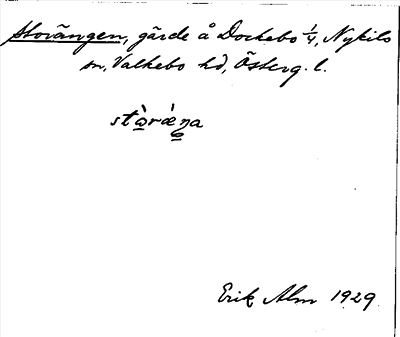 Storängen, gärde å Dockebo 1/4, Nykils
sn, Valkebo hd, Österg. l.
stὼrǽŋa
Erik Alm 1929